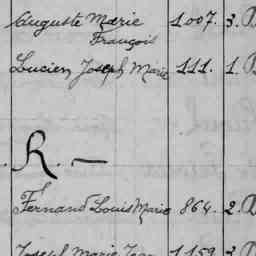 Auguste Marie 1007. 3.
François
Lucien Joseph Marie 111. 1.
R. —
Fernand Louis Marie 864. 2.
Joseph Marie 1159